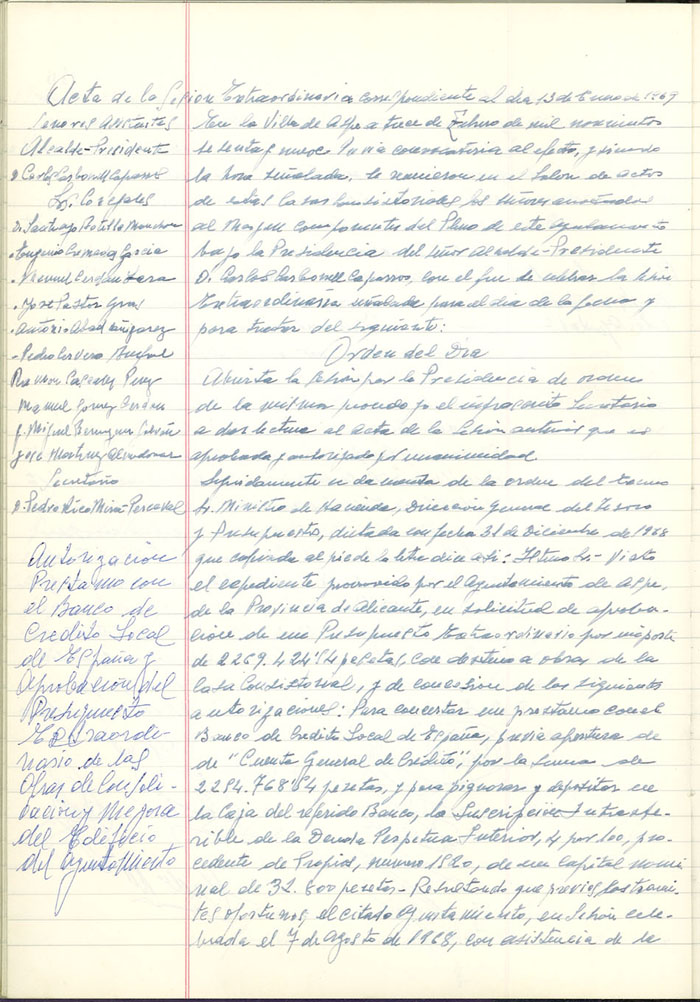 Acta de la Sesion Extraordinaria correspondiente al dia 13 de Enero de 1969
Señores Asistentes
Alcalde-Presidente
D. Carlos Carbonell Caparros
Srs. Concejales
D. Santiago Botella
Eugenio Cremades Garcia
Manuel Cerdan
José Pastor
Antonio Abad
Pedro Cervera
Ramon Cascales Perez
Manuel Gomez
J. Miguel
José Martinez
Secretario
D. Pedro Rico Mira-Perceval
Autorizacion
Prestamo con
el Banco de
Credito Local
de España y
Aprobacion del
Presupuesto
Extraordi-
nario de las
Obras de Consoli-
dacion y Mejora
del Edificio
del Ayuntamiento
En la Villa de Aspe a trece de Enero de mil novecientos
sesenta y nueve. Previa convocatoria al efecto, y siendo
la hora señalada, se reunieron en el Salon de actos
de estas Casas Consistoriales los señores anotados
al Margen componentes del Pleno de este Ayuntamiento
bajo la Presidencia del señor Alcalde-Presidente
D. Carlos Carbonell Caparros, con el fin de celebrar la sesion
Extraordinaria señalada para el dia de la fecha y
para tratar del siguiente:
Orden del Dia
Abierta la sesion por la Presidencia de orden
de la misma procedo yo el infrascrito Secretario
a dar lectura al acta de la sesion anterior que es
aprobada y autorizada por unanimidad.
Seguidamente se da cuenta de la orden del Excmo
Sr. Ministro de Hacienda, Direccion General del Tesoro
y Presupuestos, dictada con fecha 31 de Diciembre de 1968
que copiada al pie de la letra dice asi: Iltmo Sr- Visto
el expediente promovido por el Ayuntamiento de Aspe,
de la Provincia de Alicante, en solicitud de aproba-
cion de un Presupuesto Extraordinario por importe
de 2269.424'54 pesetas, con destino a obras de la
Casa Consistorial, y de concesion de las siguientes
autorizaciones: Para concertar un prestamo con el
Banco de Credito Local de España, previa apertura de
de "Cuenta General de Credito", por la suma de
2254.768'54 pesetas, y para pignorar y depositar en
la Caja del referido Banco, la Inscripcion Intransfe-
rible de la Deuda Perpetua Interior, 4 por 100, pro-
cedente de Propios, numero 1520, de un Capital nomi-
nal de 32.800 pesetas- Resultando que previos los trami-
tes oportunos, el citado Ayuntamiento, en Sesion cele-
brada el 7 de agosto de 1968, con asistencia de la